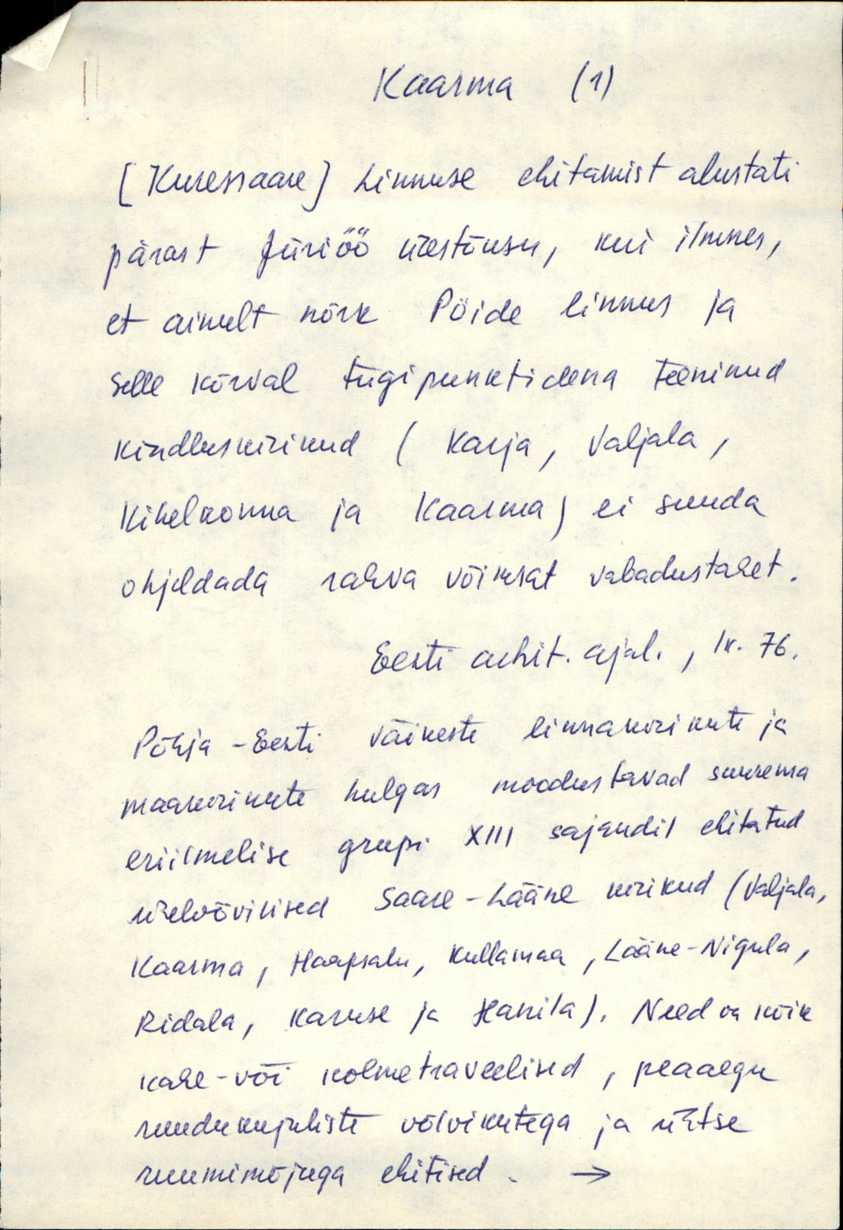 Kaarma (1)
[Kuressaare] Linnuse ehitamist alustati
pärast Jüriöö ülestõusu, kui ilmnes,
et ainult nõrk Pöide linnus ja
selle kõrval tugipunktidena teeninud
kindluskirikud (Karja, Valjala,
Kihelkonna ja Kaarma) ei suuda
ohjeldada rahva võimsat vabadustahet.
Eesti arhit. ajal., lk. 76.
Põhja-Eesti väikeste linnakirikute ja
maakirikute hulgas moodustavad suurema
eriilmelise grupi XIII sajandil ehitatud
ühelöövilised Saare-Lääne kirikud (Valjala,
Kaarma, Haapsalu, Kullamaa, Lääne-Nigula,
Ridala, Karuse ja Hanila). Need on kõik
kahe-või kolmetraveelised, peaaegu
ruudukujuliste võlvikutega ja ühtse
ruumimõjuga ehitised. →